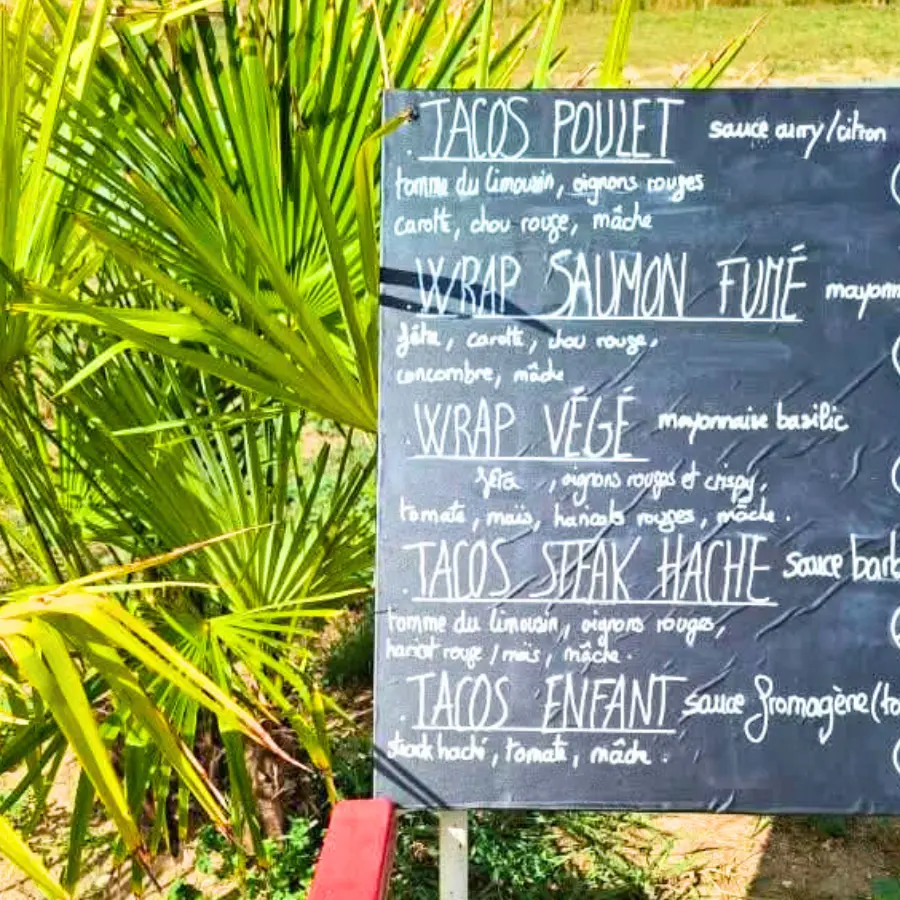 . TACOS POULET sauce curry/citron
tomme du limousin, oignons rouges
carotte, chou rouge, mâche
. WRAP SAUMON FUMÉ mayonn
fêta, carotte, chou rouge,
concombre, mâche
. WRAP VÉGÉ mayonnaise basilic
fêta , oignons rouges et crispy,
tomate, maïs, haricots rouges, mâche.
. TACOS STEAK HACHE sauce barb
tomme du limousin, oignons rouges,
haricot rouge / maïs, mâche.
. TACOS ENFANT sauce fromagère (to
steak haché, tomate, mâche.